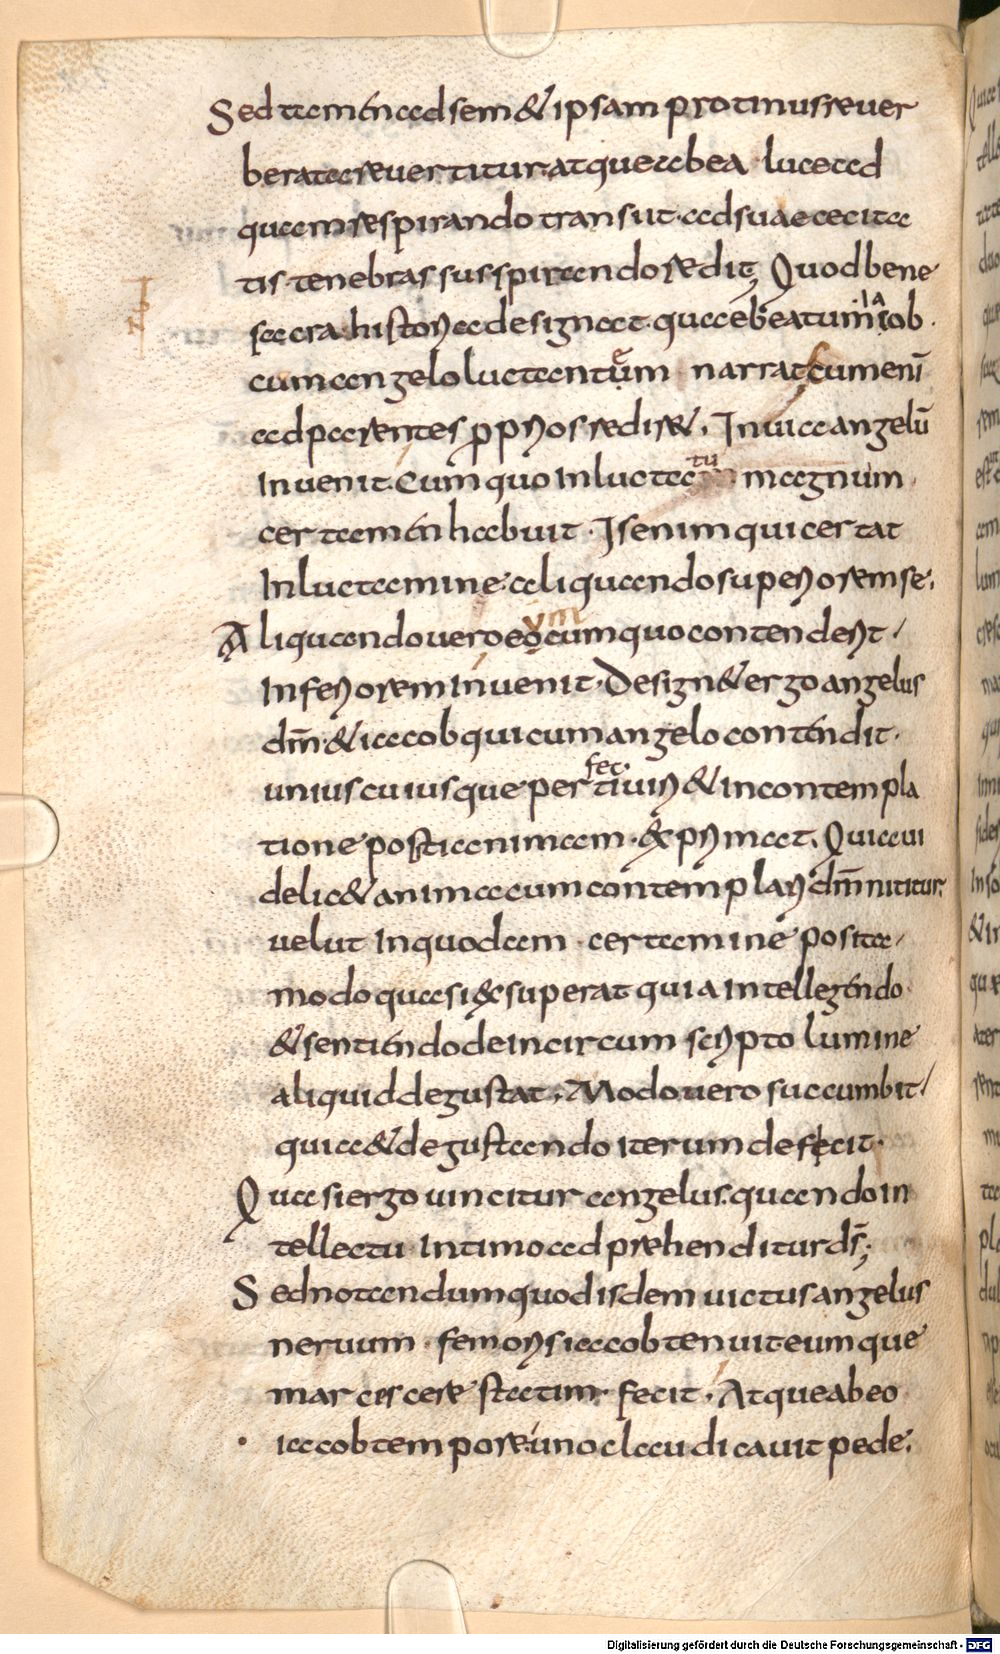 Sed tamen ad sem & ipsam protinus reuer
berata reuertitur. atque abea luce ad
quam respirando transiit. ad suae cecita
tis tenebras suspirando redit; Quod bene
sacra historia designat. quae beatum iacob.
cum angelo luctantem narrat cum eni̅
ad parentes ꝓprios redire. In uia angelu̅
inuenit. Cum quo in luctatu magnum
certamen habuit. Is enim qui certat
in luctamine. aliquando superiorem se.
Aliquando uero eo cum quo contenderit /
inferiorem inuenit. Design& ergo angelus
dm̅. & iacob qui cum angelo contendit.
uniuscuiusque perfecti uiri & in contempla
tione positi animam. exprimat. Quia ui
delic& anima cum contemplari dm̅ nititur.
uelut in quodam. certamine posita /
modo quasi exsuperat quia intellegendo
& sentiendo de incircumscripto lumine
aliquid degustat. Modo uero succumbit /
quia & degustando iterum defecit.
Quasi ergo uincitur angelus. quando in
tellectu intimo adprehenditur ds̅;
Sed notandum quod isdem uictus angelus
neruum. femoris iacob tenuit eumque
marcescere statim. fecit. Atque abeo
iacob tempore. uno claudicauit pede.
Digitalisierung gefördert durch die Deutsche Forschungsgemeinschaft - DFG